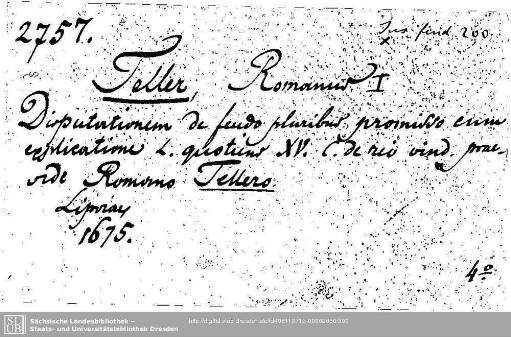 2757.
Jus feud 200
Teller, Romanus I
Disputationem de feudo pluribus promisso cum
explicatione L. quotiens XV. C. de rei vind. prae-
side Romano Tellero
Lipsiae
1675.
4º
SLUB
Sächsische Landesbibliothek –
Staats- und Universitätsbibliothek Dresden